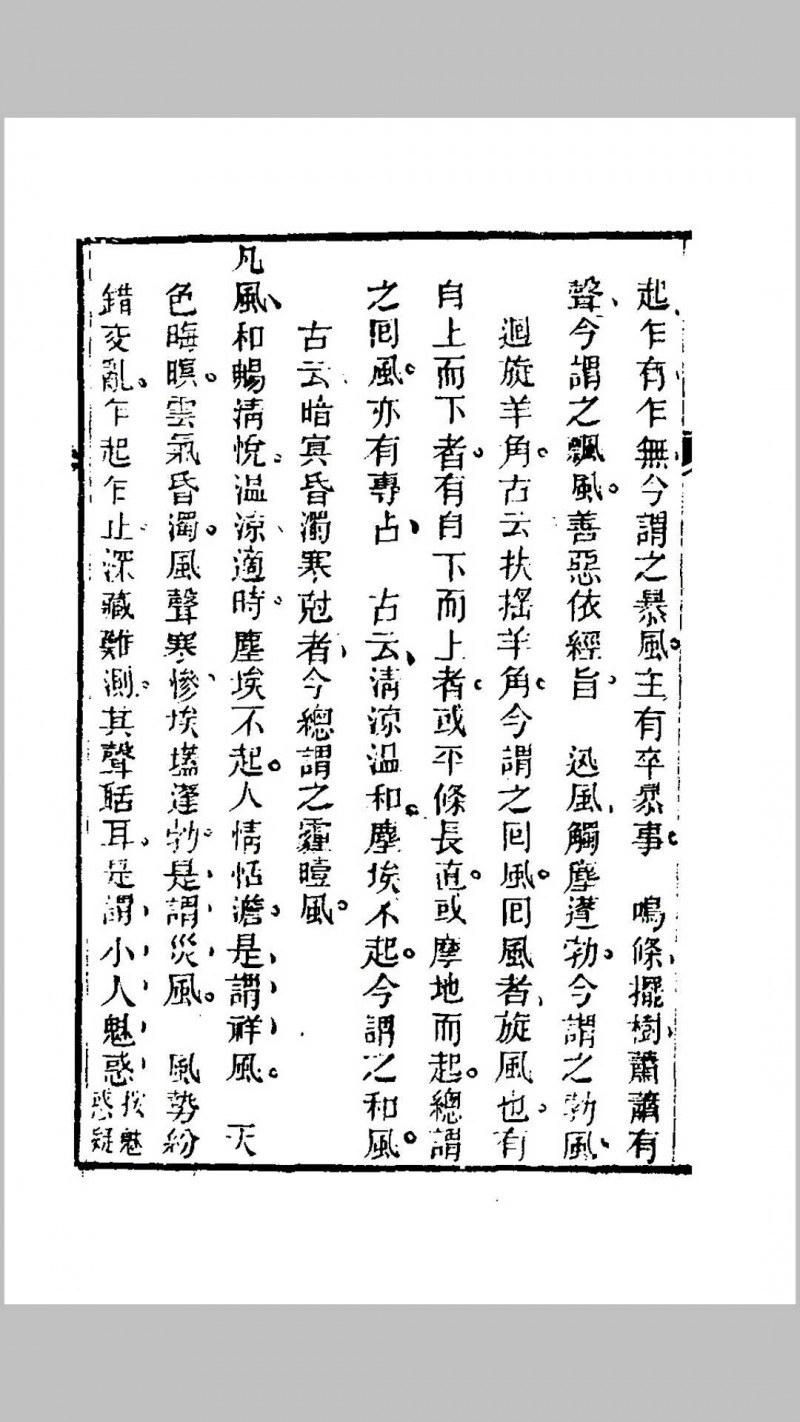 起乍有乍無今謂之暴風。主有卒暴事。　鳴條擺樹蕭蕭有
聲、今謂之飄風。善惡依經旨。　迅風、觸塵蓬勃。今謂之勃風、
迴旋羊角。古云扶搖羊角。今謂之回風。回風者、旋風也。有
自上而下者。有自下而上者。或平條長直。或摩地而起。總謂
之回風。亦有專占、　古云、清涼温和。塵埃不起。今謂之和風。
古云、暗㝠昏濁寒尅者、今總謂之霾曀風。
凡風、和暢清悅、温涼、適時。塵埃不起。人情恬澹。是謂祥風。　天
色晦暝。雲氣昏濁。風聲寒慘、埃壒蓬勃。是謂災風。　風勢紛
錯变亂。乍起乍止。深藏難測。其聲聒耳。是謂小人魅惑 按魅惑疑